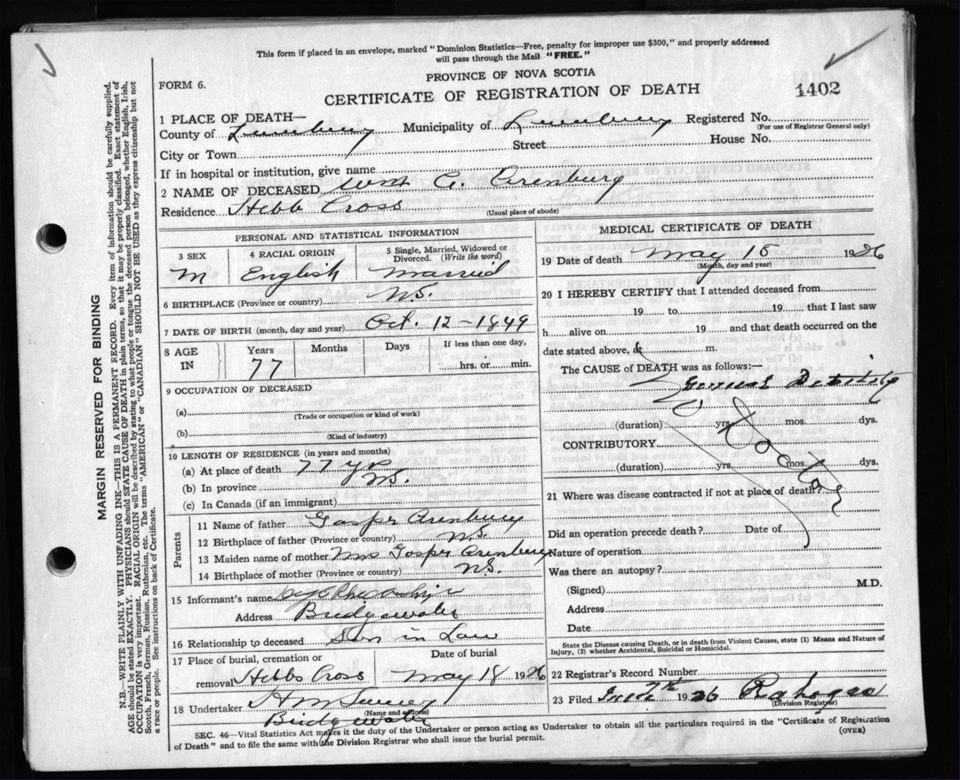 This form if placed in an envelope, marked "Dominion Statistics—Free, penalty for improper use $300," and properly addressed
will pass through the Mail "FREE."
PROVINCE OF NOVA SCOTIA
FORM 6.
CERTIFICATE OF REGISTRATION OF DEATH
1402
1 PLACE OF DEATH—
County of Lunenburg Municipality of Lunenburg Registered No.
(For use of Registrar General only)
City or Town Street House No.
If in hospital or institution, give name
2 NAME OF DECEASED Wm G. Arenburg
Residence Hebb Cross
(Usual place of abode)
PERSONAL AND STATISTICAL INFORMATION
3 SEX 4 RACIAL ORIGIN 5 Single, Married, Widowed or
Divorced. (Write the word)
M English Married
6 BIRTHPLACE (Province or country) N.S.
7 DATE OF BIRTH (month, day and year) Oct. 12-1849
8 AGE IN Years Months Days If less than one day,
77 hrs. or min.
9 OCCUPATION OF DECEASED
(a)
(Trade or occupation or kind of work)
(b)
(Kind of industry)
10 LENGTH OF RESIDENCE (in years and months)
(a) At place of death 77 yrs
(b) In province N.S.
(c) In Canada (if an immigrant)
Parents
11 Name of father Gasper Arenburg
12 Birthplace of father (Province or country) N.S.
13 Maiden name of mother Mrs Gasper Arenburg
14 Birthplace of mother (Province or country) N.S.
15 Informant's name
Address Bridgewater
16 Relationship to deceased Son in Law
17 Place of burial, cremation or Date of burial
removal Hebbs Cross May 18 1926
18 Undertaker
(Name and address)
Bridgewater
MEDICAL CERTIFICATE OF DEATH
19 Date of death May 15 1926
(Month, day and year)
20 I HEREBY CERTIFY that I attended deceased from
19 to 19 that I last saw
h alive on 19 and that death occurred on the
date stated above, at m.
The CAUSE of DEATH was as follows:—
General Debility
(duration) yrs. mos. dys.
CONTRIBUTORY
(duration) yrs. mos. dys.
No Doctor
21 Where was disease contracted if not at place of death?
Did an operation precede death? Date of
Nature of operation
Was there an autopsy?
(Signed) M.D.
Address
Date
State the Disease causing Death, or in death from Violent Causes, state (1) Means and Nature of
Injury, (2) whether Accidental, Suicidal or Homicidal.
22 Registrar's Record Number
23 Filed 1926
(Division Registrar)
SEC. 46—Vital Statistics Act makes it the duty of the Undertaker or person acting as Undertaker to obtain all the particulars required in the "Certificate of Registration
of Death" and to file the same with the Division Registrar who shall issue the burial permit.
(OVER)
MARGIN RESERVED FOR BINDING
N.B.—WRITE PLAINLY WITH UNFADING INK—THIS IS A PERMANENT RECORD. Every item of information should be carefully supplied.
AGE should be stated EXACTLY. PHYSICIANS should STATE CAUSE OF DEATH in plain terms, so that it may be properly classified. Exact statement of
OCCUPATION is very important. RACIAL ORIGIN will be described by stating to what people or tongue the deceased person belonged, whether English, Irish,
Scotch, French, German, Russian, Ruthenian, etc. The terms "AMERICAN" or "CANADIAN" SHOULD NOT BE USED as they express citizenship but not
a race or people. See instructions on back of Certificate.